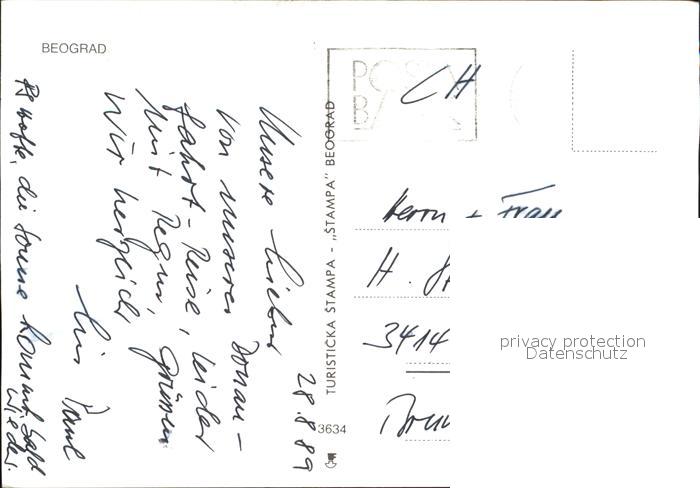 BEOGRAD
28.8.89
Unsere Lieben
von unserer Donau-
fahrt-Reise, leider
mit Regen, grüssen
wir herzlich
Paul
Ps hoffe, die Sonne kommt bald
wieder.
TURISTIČKA ŠTAMPA - „ŠTAMPA” BEOGRAD
3634
CH
Herrn + Frau
H.
3414
privacy protection
Datenschutz